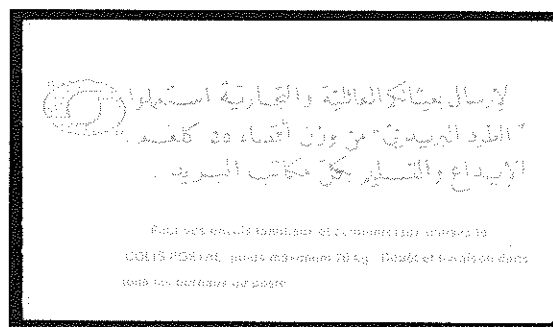 لإرسال بعيثاتكم العائلية والتجارية استعملوا
"الطرد البريدي" من وزن أقصاه
الإيداع والتسليم بكل مكاتب البريد .
Pour vos envois familiaux et commerciaux utilisez le
COLIS POSTAL, poids maximum 20 kg. Dépôt et livraison dans
tous les bureaux de poste